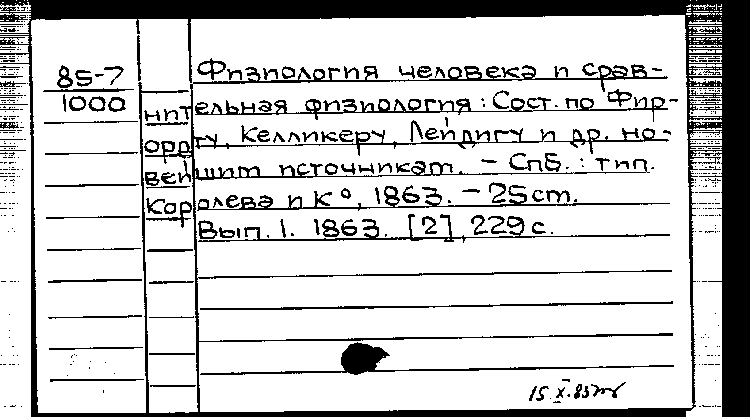 85-7
1000
Физиология человека и срав-
нительная физиология: Сост. по Фир-
орду, Келликеру, Лейдигу и др. но-
вейшим источникам. - СПБ.: тип.
Королева и К°, 1863. - 25 cm.
Вып. 1. 1863. [2], 229 с.
15 X.85